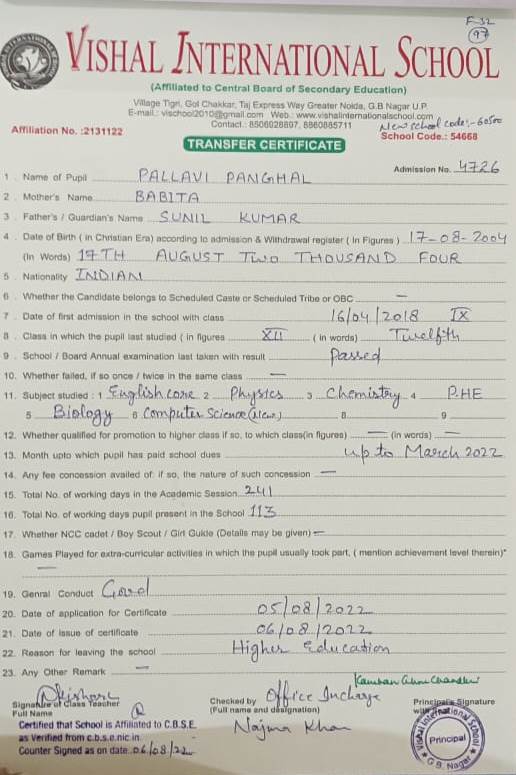 F-32
97
VISHAL INTERNATIONAL SCHOOL
(Affiliated to Central Board of Secondary Education)
Village Tigri, Gol Chakkar, Taj Express Way Greater Noida, G.B Nagar U.P.
E-mail.: vischool2010@gmail.com Web.: www.vishalinternationalschool.com
Contact.: 8506928897, 8860885711
New school code:-60500
Affiliation No. :2131122
School Code.: 54668
TRANSFER CERTIFICATE
Admission No. 4726
1 . Name of Pupil PALLAVI PANGHAL
2 . Mother's Name BABITA
3 . Father's / Guardian's Name SUNIL KUMAR
4 . Date of Birth ( in Christian Era) according to admission & Withdrawal register ( In Figures ) 17-08-2004
(In Words) 17TH AUGUST TWO THOUSAND FOUR
5 . Nationality INDIAN
6 . Whether the Candidate belongs to Scheduled Caste or Scheduled Tribe or OBC —
7 . Date of first admission in the school with class 16/04/2018 IX
8 . Class in which the pupil last studied ( in figures XII ( in words) Twelfth
9 . School / Board Annual examination last taken with result Passed
10. Whether failed, if so once / twice in the same class —
11. Subject studied : 1 English core 2 Physics 3 Chemistry 4 P.HE
5 Biology 6 Computer Science (New) 8 9
12. Whether qualified for promotion to higher class if so, to which class(in figures) — (in words) —
13. Month upto which pupil has paid school dues up to March 2022
14. Any fee concession availed of: if so, the nature of such concession —
15. Total No. of working days in the Academic Session 241
16. Total No. of working days pupil present in the School 113
17. Whether NCC cadet / Boy Scout / Girl Gukle (Details may be given) —
18. Games Played for extra-curricular activities in which the pupil usually took part, ( mention achievement level therein)*
—
19. Genral Conduct Good
20. Date of application for Certificate 05/08/2022
21. Date of issue of certificate 06/08/2022
22. Reason for leaving the school Higher Education
23. Any Other Remark —
Signature of Class Teacher
Full Name
Checked by Office Incharge
(Full name and designation)
Najma Khan
Principal's Signature
Certified that School is Affiliated to C.B.S.E.
as Verified from c.b.s.e.nic.in.
Counter Signed as on date 06/08/22
Vishal International School
Principal
G.B. Nagar